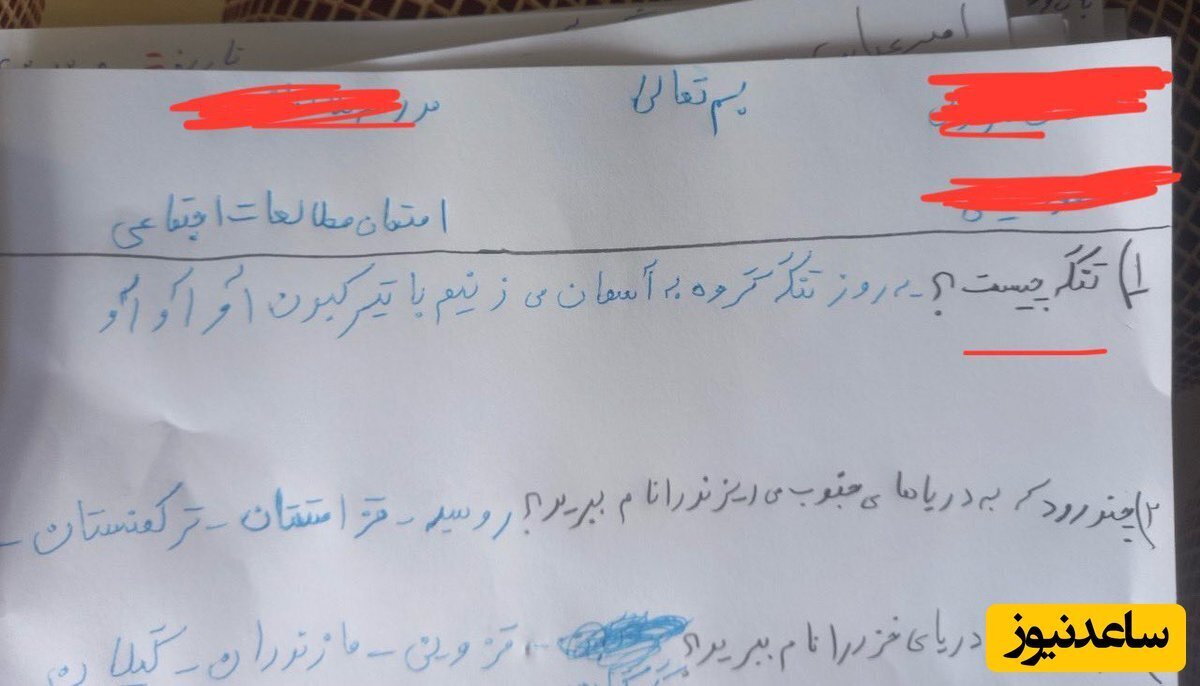 امیرعباس
تاریخ
بسم تعالی
امتحان مطالعات اجتماعی
۱) تنگه چیست؟ یه روز تنگه گروه به آسمان می زنیم با تیرکبون اُو اُو اُو
۲) چند رود که به دریاها ی جنوب می ریزند را نام ببرید؟ روسیه - قزاقستان - ترکمنستان -
دریای خزر را نام ببرید؟ قزوین - مازندران - گیلان
ساعدنیوز